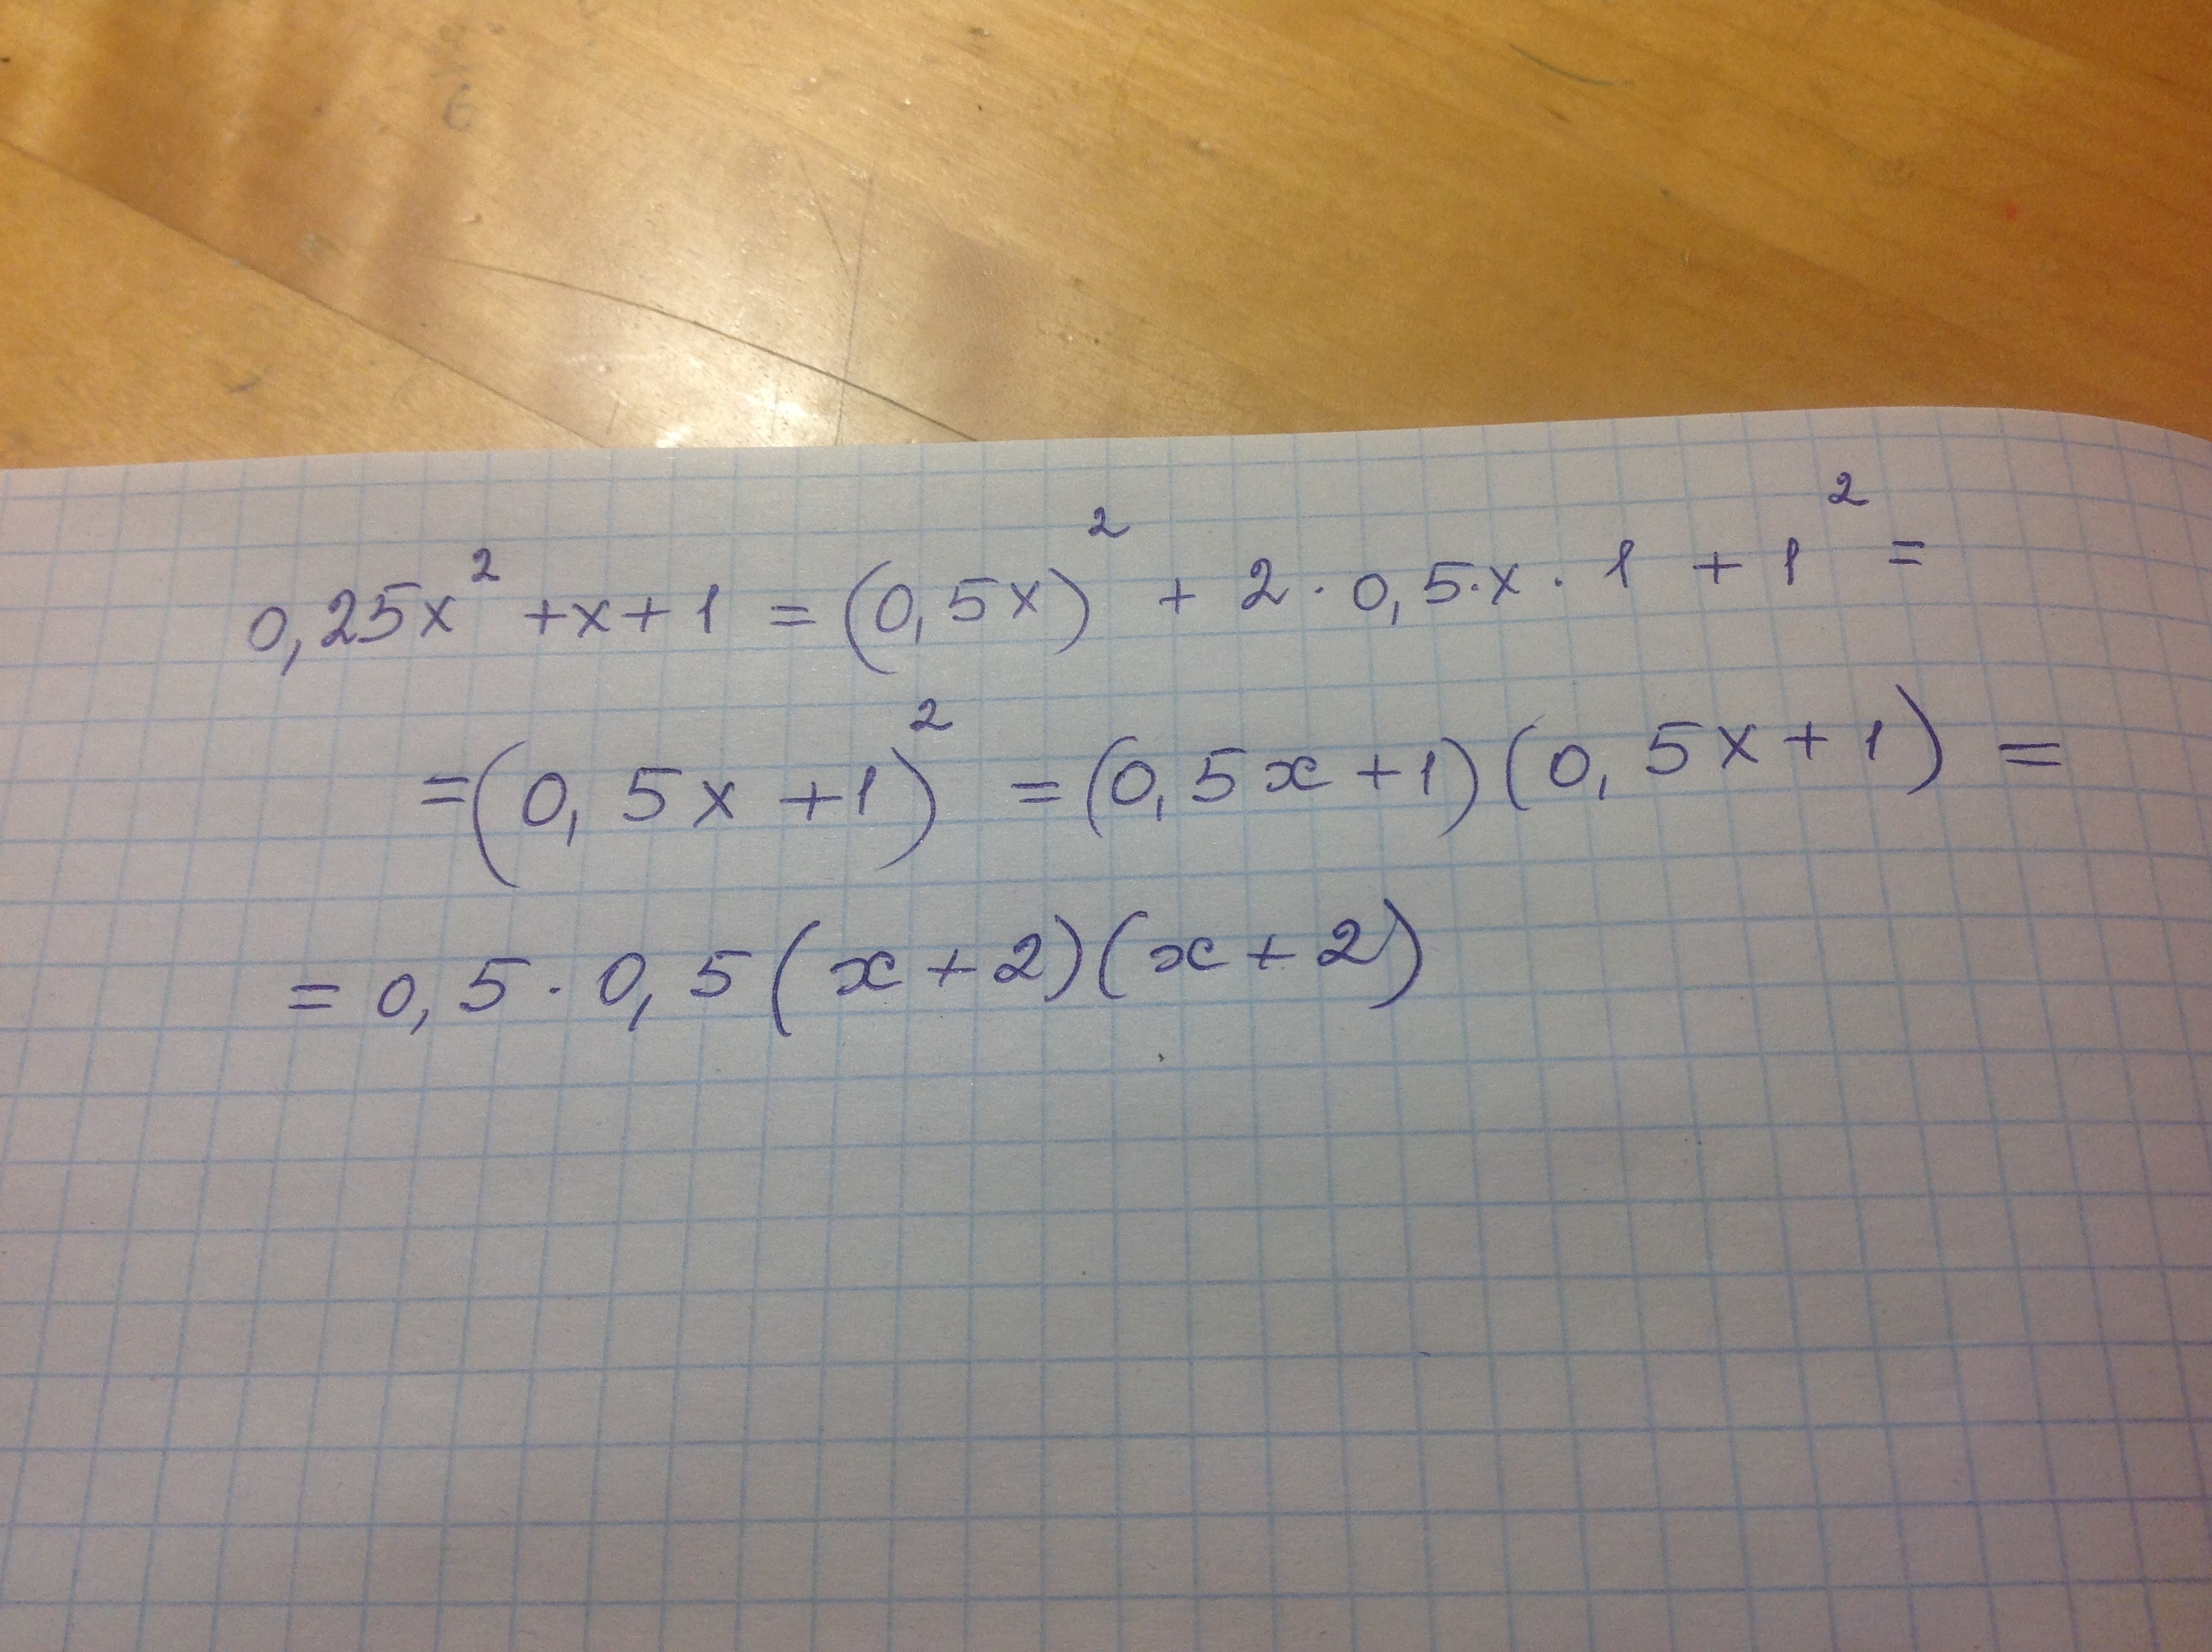 0,25x² + x + 1 = (0,5x)² + 2 · 0,5 · x · 1 + 1² =
= (0,5x + 1)² = (0,5x + 1)(0,5x + 1) =
= 0,5 · 0,5(x + 2)(x + 2)